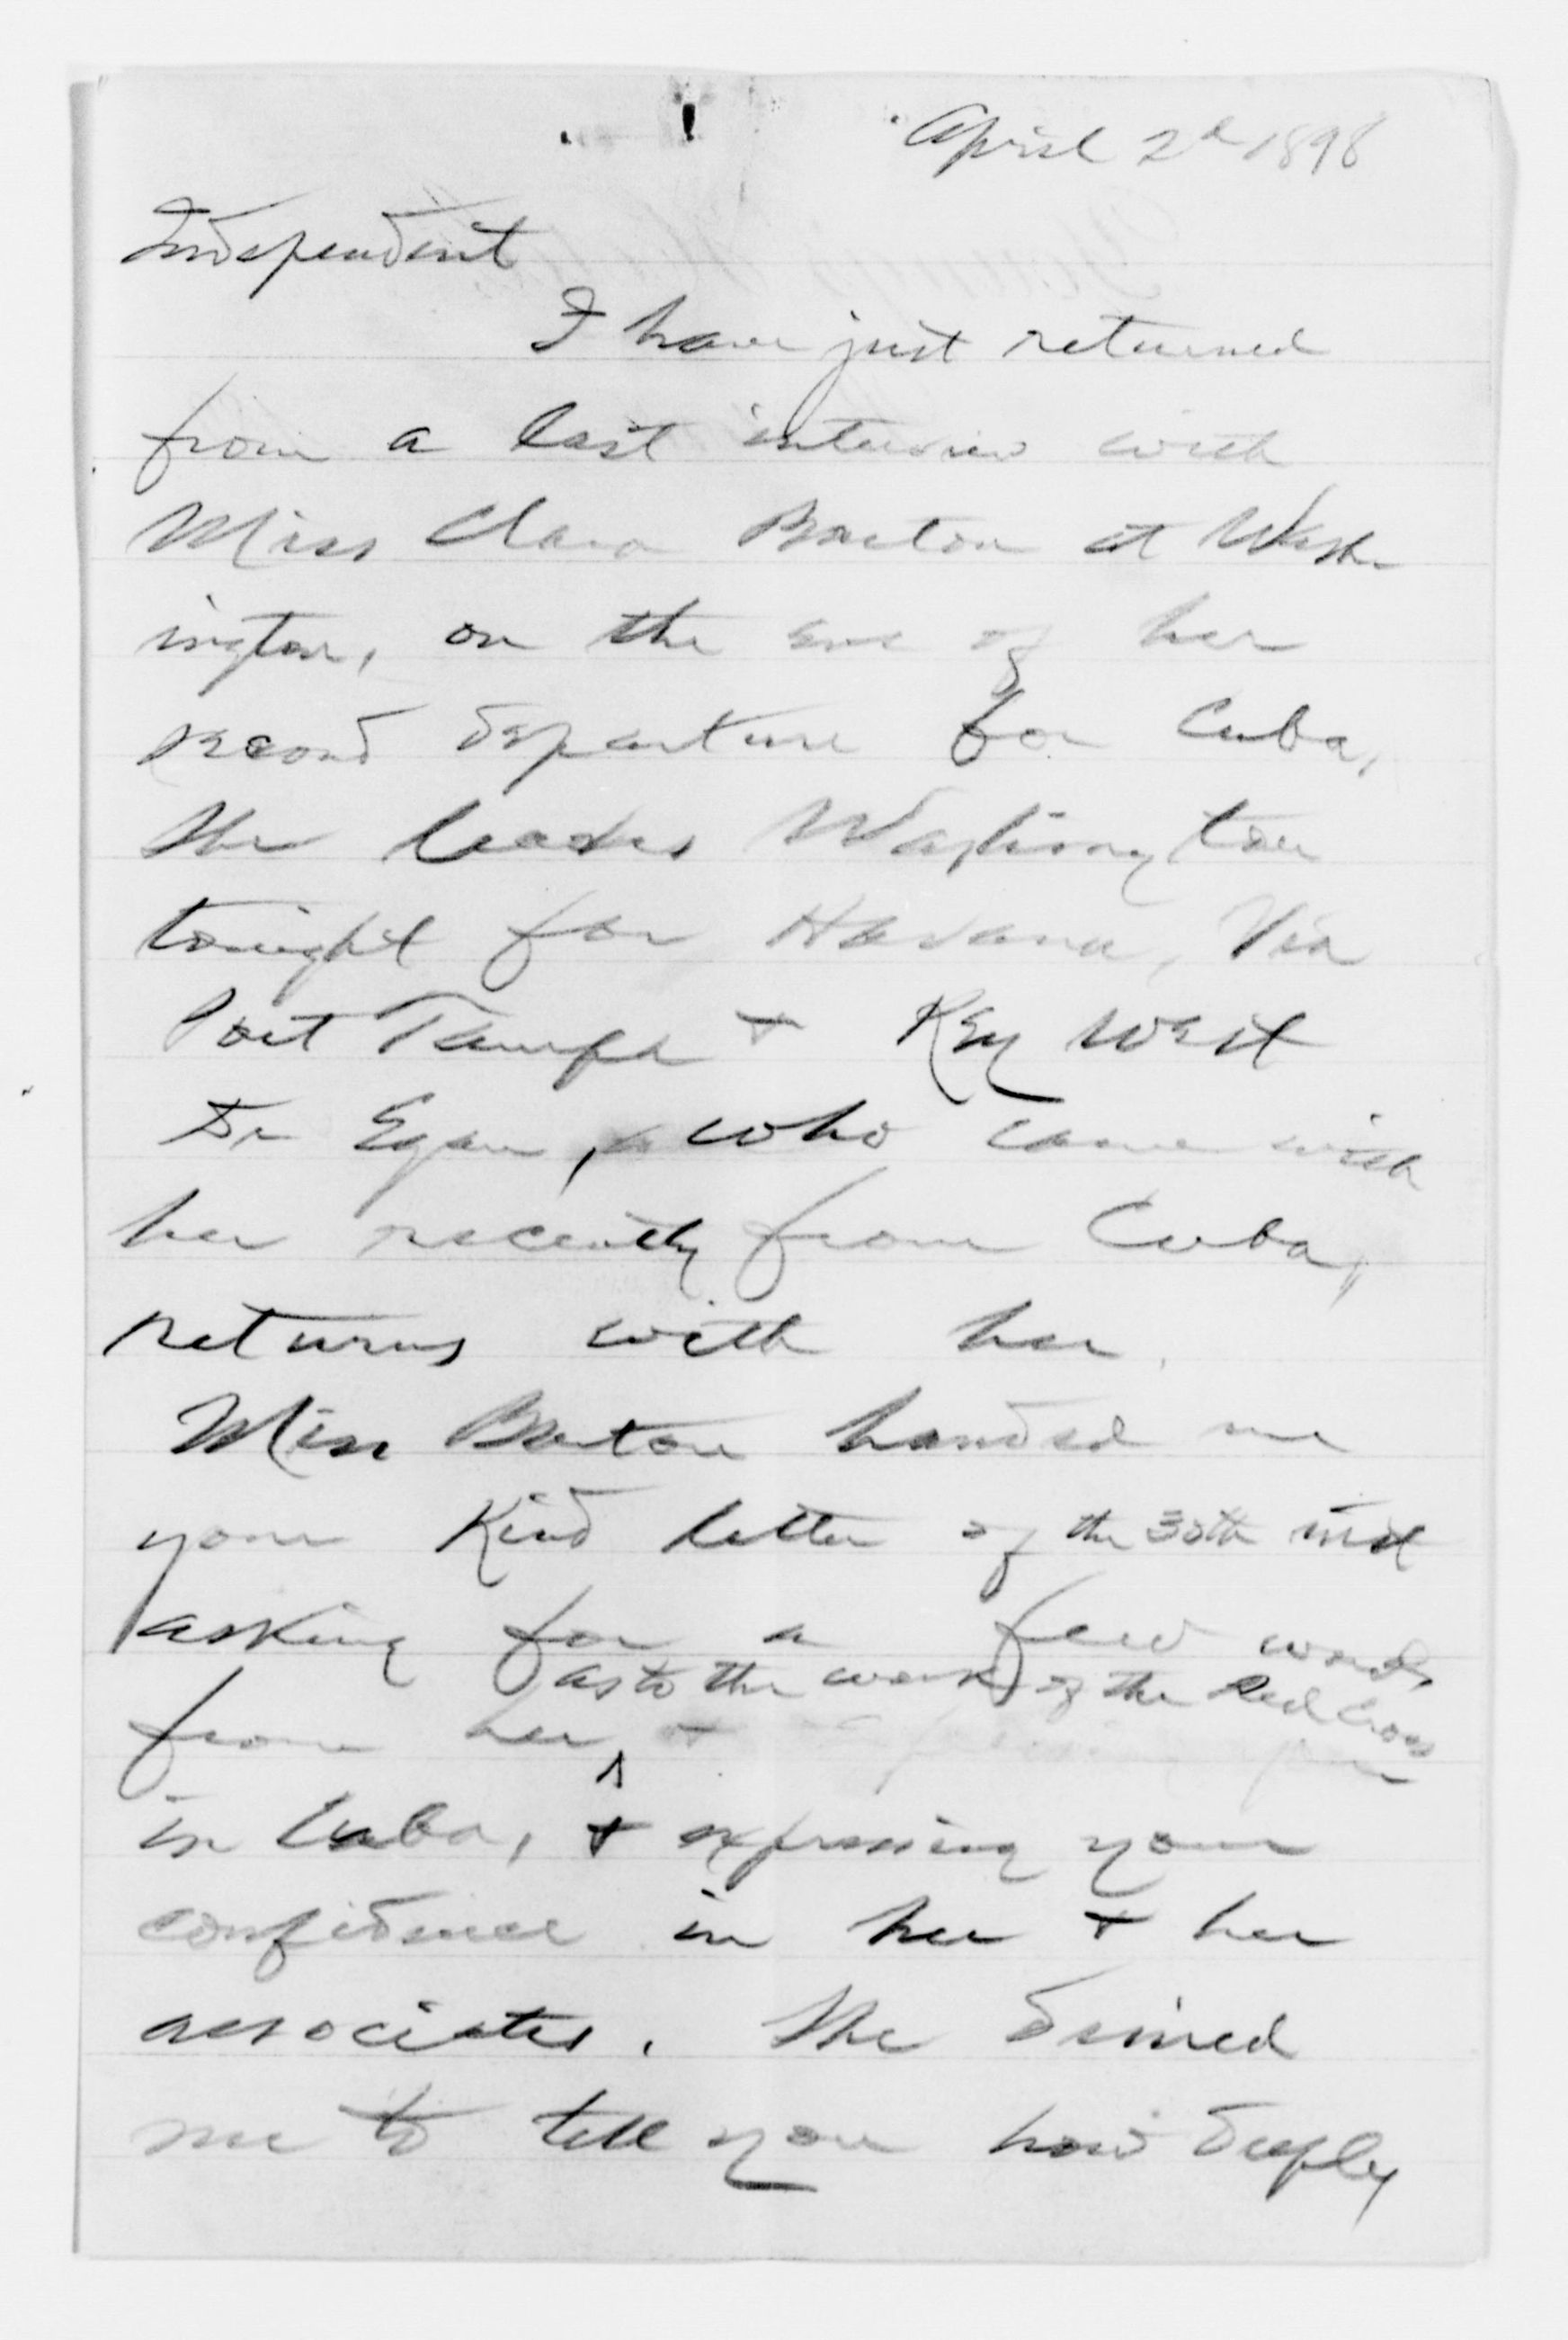 April 2d 1898
Independent
I have just returned
from a last interview with
Miss Clara Barton at Wash-
ington, on the eve of her
second departure for Cuba,
She leaves Washington
tonight for Havana, Via
Port Tampa + Key West
Dr Egan, who came with
her recently from Cuba,
returns with her.
Miss Barton handed me
your kind letter of the 30th inst
asking for a few words
as to the work of the Red Cross
from her, +
in Cuba, + expressing your
confidence in her + her
associates. She desired
me to tell you how deeply